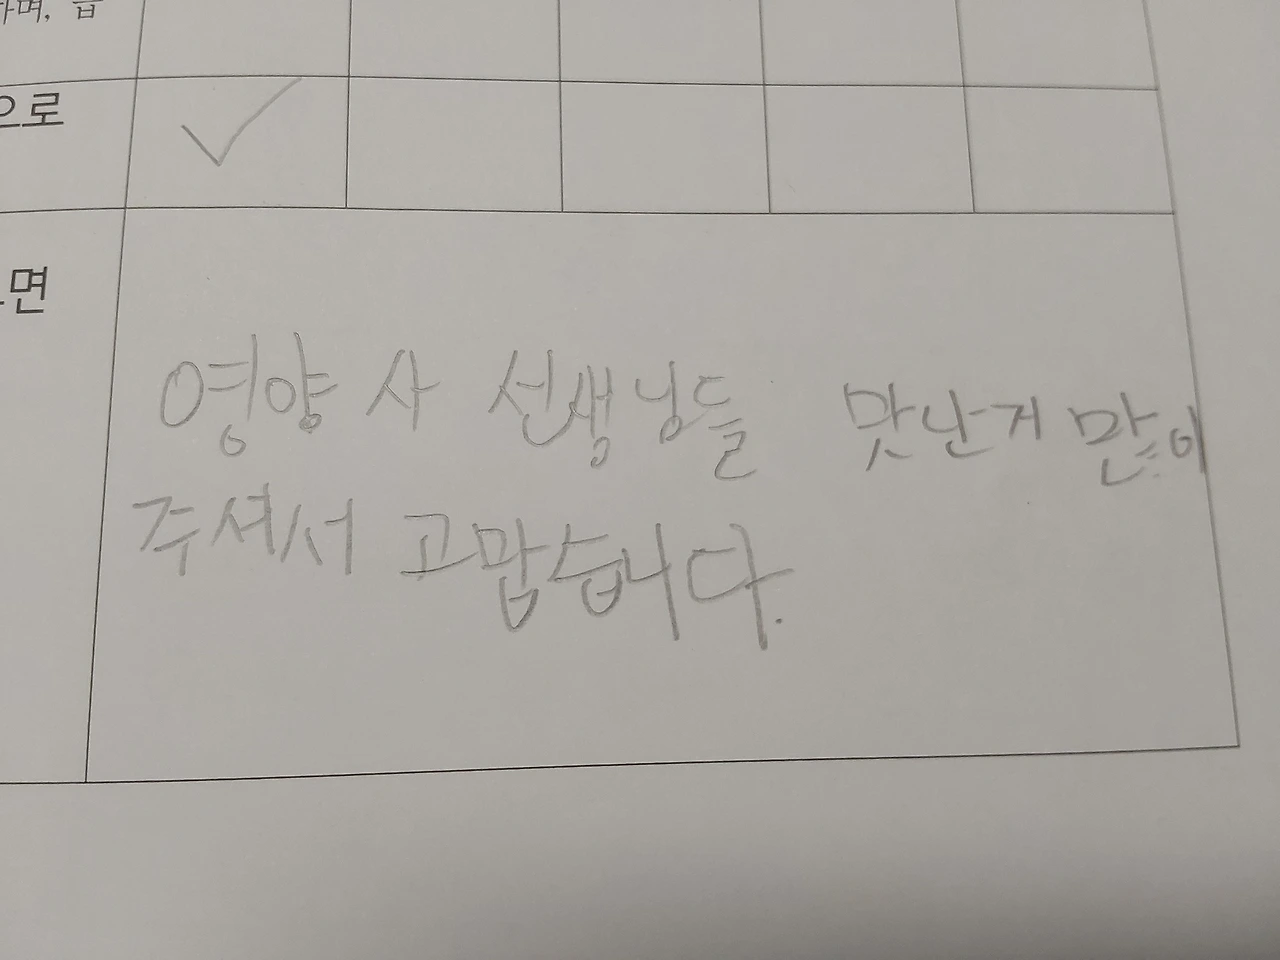 하며, 급
으로
면
영양사 선생닝들 맛난거 많이
주셔서 고맙습니다.